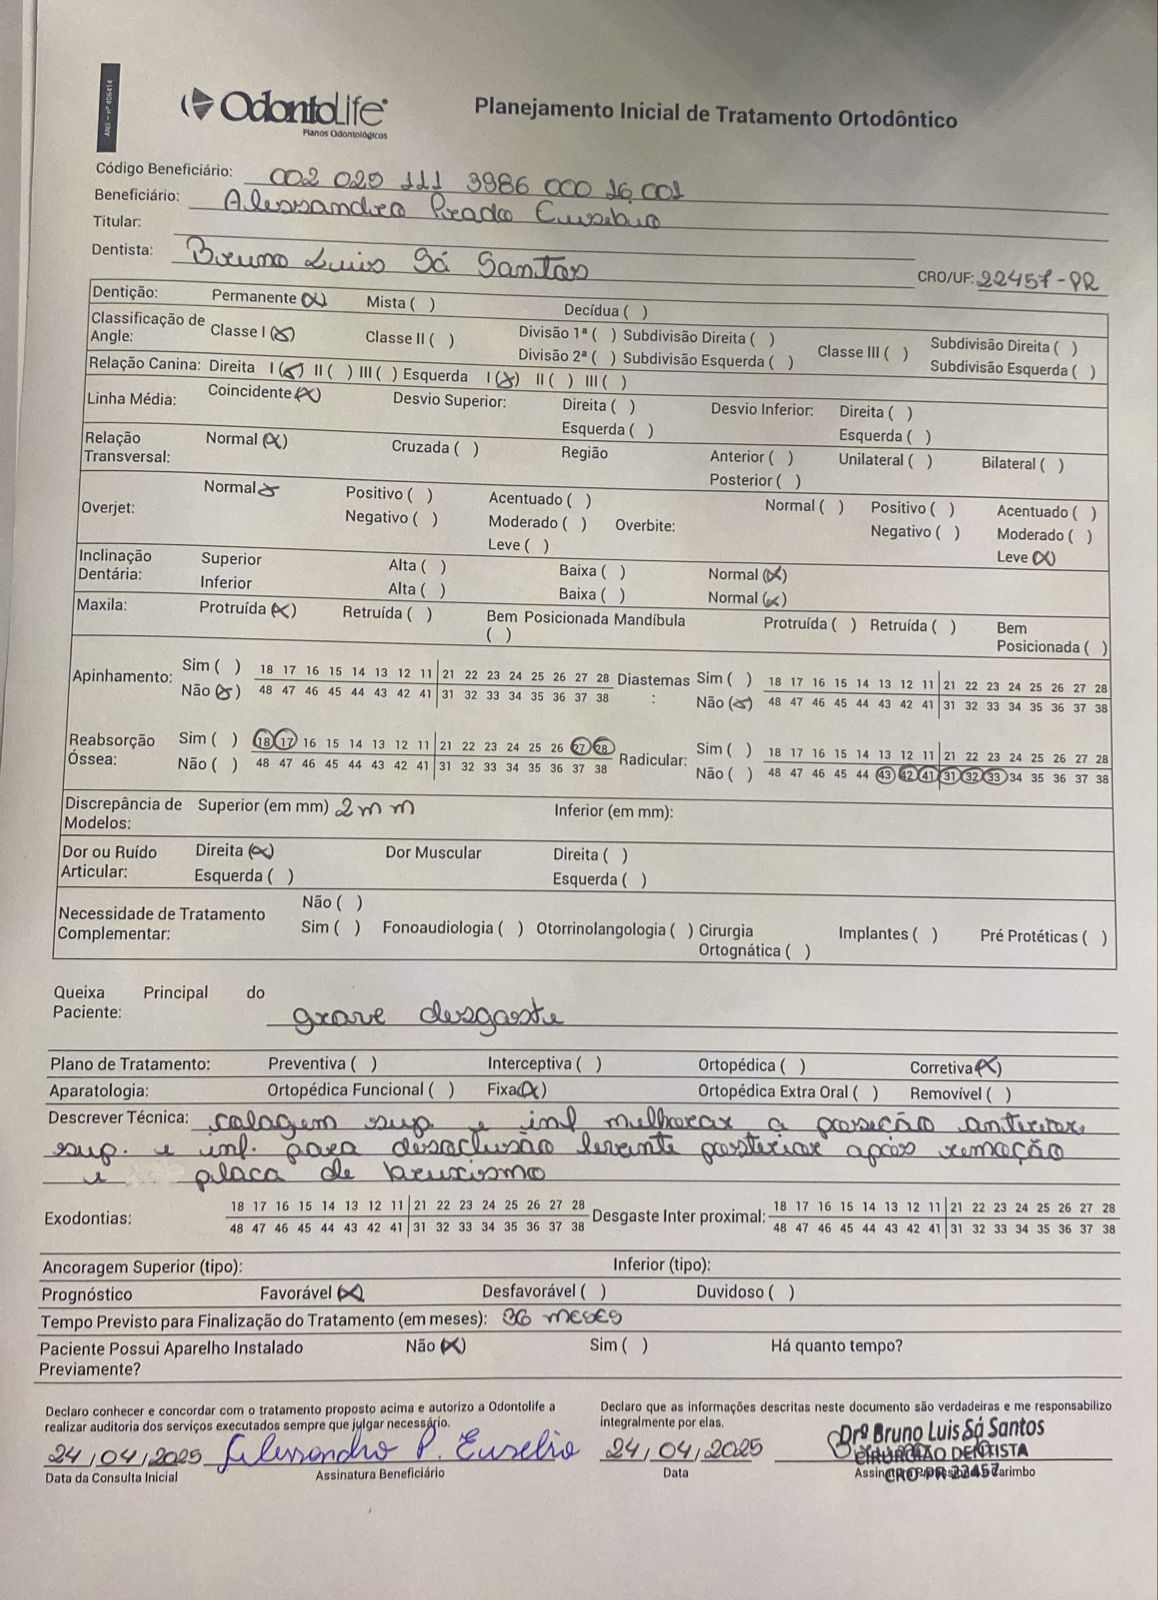 ANS - nº 406414
OdontoLife
Planos Odontológicos
Planejamento Inicial de Tratamento Ortodôntico
Código Beneficiário: 002 020 111 3986 000 16 001
Beneficiário: Alessandro Prado Eusebio
Titular:
Dentista: Bruno Luis Sá Santos CRO/UF: 22457-PR
Dentição: Permanente (x) Mista ( ) Decídua ( )
Classificação de Angle: Classe I (x) Classe II ( ) Divisão 1ª ( ) Subdivisão Direita ( ) Classe III ( ) Subdivisão Direita ( )
Divisão 2ª ( ) Subdivisão Esquerda ( ) Subdivisão Esquerda ( )
Relação Canina: Direita I (x) II ( ) III ( ) Esquerda I (x) II ( ) III ( )
Linha Média: Coincidente (x) Desvio Superior: Direita ( ) Desvio Inferior: Direita ( )
Esquerda ( ) Esquerda ( )
Relação Transversal: Normal (x) Cruzada ( ) Região Anterior ( ) Unilateral ( ) Bilateral ( )
Posterior ( )
Overjet: Normal x Positivo ( ) Acentuado ( ) Overbite: Normal ( ) Positivo ( ) Acentuado ( )
Negativo ( ) Moderado ( ) Negativo ( ) Moderado ( )
Leve ( ) Leve (x)
Inclinação Dentária: Superior Alta ( ) Baixa ( ) Normal (x)
Inferior Alta ( ) Baixa ( ) Normal (x)
Maxila: Protruída (x) Retruída ( ) Bem Posicionada ( ) Mandíbula Protruída ( ) Retruída ( ) Bem Posicionada ( )
Apinhamento: Sim ( ) 18 17 16 15 14 13 12 11 21 22 23 24 25 26 27 28 Diastemas: Sim ( ) 18 17 16 15 14 13 12 11 21 22 23 24 25 26 27 28
Não (x) 48 47 46 45 44 43 42 41 31 32 33 34 35 36 37 38 Não (x) 48 47 46 45 44 43 42 41 31 32 33 34 35 36 37 38
Reabsorção Óssea: Sim ( ) 18 17 16 15 14 13 12 11 21 22 23 24 25 26 27 28 Radicular: Sim ( ) 18 17 16 15 14 13 12 11 21 22 23 24 25 26 27 28
Não ( ) 48 47 46 45 44 43 42 41 31 32 33 34 35 36 37 38 Não ( ) 48 47 46 45 44 43 42 41 31 32 33 34 35 36 37 38
Discrepância de Modelos: Superior (em mm) 2mm Inferior (em mm):
Dor ou Ruído Articular: Direita (x) Dor Muscular Direita ( )
Esquerda ( ) Esquerda ( )
Necessidade de Tratamento Complementar: Não ( )
Sim ( ) Fonoaudiologia ( ) Otorrinolangologia ( ) Cirurgia Ortognática ( ) Implantes ( ) Pré Protéticas ( )
Queixa Principal do Paciente: grave desgaste
Plano de Tratamento: Preventiva ( ) Interceptiva ( ) Ortopédica ( ) Corretiva (x)
Aparatologia: Ortopédica Funcional ( ) Fixa (x) Ortopédica Extra Oral ( ) Removível ( )
Descrever Técnica: colagem sup. e inf melhorar a posição anterior
sup. e inf. para desoclusão levante posterior após remoção
e placa de bruxismo
Exodontias: 18 17 16 15 14 13 12 11 21 22 23 24 25 26 27 28 Desgaste Inter proximal: 18 17 16 15 14 13 12 11 21 22 23 24 25 26 27 28
48 47 46 45 44 43 42 41 31 32 33 34 35 36 37 38 48 47 46 45 44 43 42 41 31 32 33 34 35 36 37 38
Ancoragem Superior (tipo): Inferior (tipo):
Prognóstico Favorável (x) Desfavorável ( ) Duvidoso ( )
Tempo Previsto para Finalização do Tratamento (em meses): 36 meses
Paciente Possui Aparelho Instalado Previamente? Não (x) Sim ( ) Há quanto tempo?
Declaro conhecer e concordar com o tratamento proposto acima e autorizo a Odontolife a
realizar auditoria dos serviços executados sempre que julgar necessário.
24/04/2025 Alessandro P. Eusebio
Data da Consulta Inicial Assinatura Beneficiário
Declaro que as informações descritas neste documento são verdadeiras e me responsabilizo
integralmente por elas.
24/04/2025
Data
Drº Bruno Luis Sá Santos
CIRURGIÃO DENTISTA
CRO-PR 22457